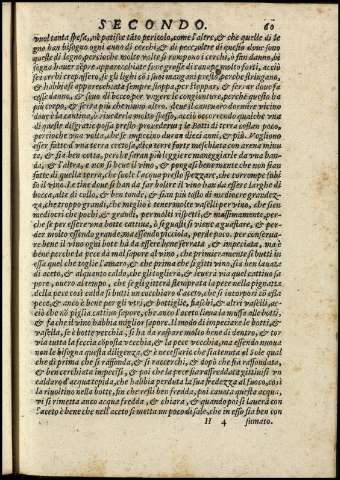 SECONDO. 60
vuol tanta spesa, nè patisce tãto pericolo, come l'altre, & che quelle di le
gno han bisogno ogni anno di cerchi, & di pece, altre di questo doue sono
quelle di legno, percioche molte volte si rompono i cerchi, ò fan danno, bi
sogna hauer sẽpre apparecchiate fune grosse di canape molto forti, acciò
se i cerchi crepassero, se gli leghi cõ i suoi mangani presto, perche stringano,
& habbiasi apparecchiata sempre stoppa, per stoppar, & serrar doue fa
cesse danno, & seuo di becco per vngere le congionture, perche questo ha
più corpo, & serra più che niun altro. deue il canouaro dormire vicino
doue è la cantina, ò riuederla molto spesso, acciò occorrendo qualche vna
di queste disgratie possa presto prouederui; le Botti di terra costan poco,
percioche vna volta, che s'impeciano duran dieci anni, & più. Vogliono
esser fatte d'vna terra cretosa, dico terra forte meschiata con arena minu
ta, & sia ben cotta, perche seran più leggiere maneggiarle da vna ban-
da, & l'altra, & non si beue il vino, & pongasi benamente che non sian
fatte di quella terra, che suole l'acqua presto spezzare, che corrompe subi
to il vino. Le tine doue si han da far bolere il vino han da essere larghe di
bocca, alte di collo, & ben tonde, & sian più tosto di mediocre grandez-
za, che troppo grandi, che meglio è tener molte vaselli per vino, che sien
mediocri che pochi, & grandi, per molti rispetti, & massimamente, per-
che se per essere vna botte cattina, ò si guasti si viene a guastare, & per-
der molto essendo grande, ma essendo picciola, perde poco. Per conserua-
re bene il vino ogni botte hà da essere bene serrata, & impeciata, ma è
bene perche la pece dà mal sapore al vino, che primieramente si butti in
essa quel che toglie l'amaro, & che prima che si gitti vino, sia ben lauata
di aceto, & alquanto caldo, che gli toglierà, & leuerà via quel cattino sa
pore, ouero al tempo, che se gli gitterà stemprata la pece nella pignatta
della pece così calda si butti un cucchiaro d'aceto, che si incorpori cõ essa
pece, & anco è bene per gli vtri, & bottiglie, fiaschi, & altri vaselli, ac-
ciò che nõ piglia cattino sapore, che anco l'aceto leua la muffa alle botti,
& fa che il vino habbia miglior sapore. il modo di impeciare le botti, &
vaselli, se è botte vecchia, si ha da raspare molto bene di dentro, & tor
via tutta la feccia cõ posta vecchia, & la pece vecchia, ma essendo nuoua
non le bisogna questa diligenza, & è necessario che sia tenuta al Sole qual
che dì prima che si rassonda, & si rascerchi, & dopò che sia rassondata,
& ben cerchiata impecisi, & poi che la pece sia raffredata gittisi vn
caldaro d'acqua tepida, che habbia perduta la sua fredezza al fuoco, così
la riuoltino nella botte, fin che resti ben fredda, poi canata questa acqua,
vi si rimetta anco acqua fredda, & chiara, & quando poi si lauerà con
l'aceto è bene che nell'aceto si metta un poco di sale, che in esso sia ben con
H 4 sumato.